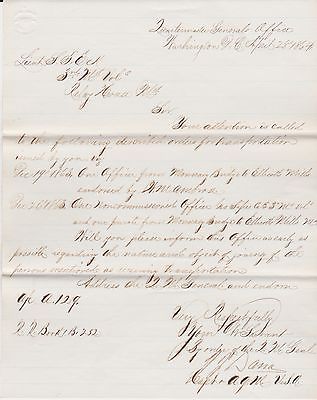 Quartermaster General's Office
Washington D.C. Sept 25 1864
Lieut S. S.
3rd Md Vols
Relay House Md
Sir
Your attention is called
to the following described orders for transportation
issued by you
Dec 19 1863 One Officer from Monocacy Bridge to Ellicotts Mills
endorsed by
Dec 20 1863 One Noncommissioned Officer
and one private from Monocacy Bridge to Ellicotts Mills
Will you please inform this Office as early as
possible regarding the nature and object of journey of the
persons mentioned as receiving transportation
Address the Q M General and endorse
A. 129
Book 1 B 252
Very Respectfully
Your Ob Servant
By order of the Q M Genl
Dana
Capt & AQM USA